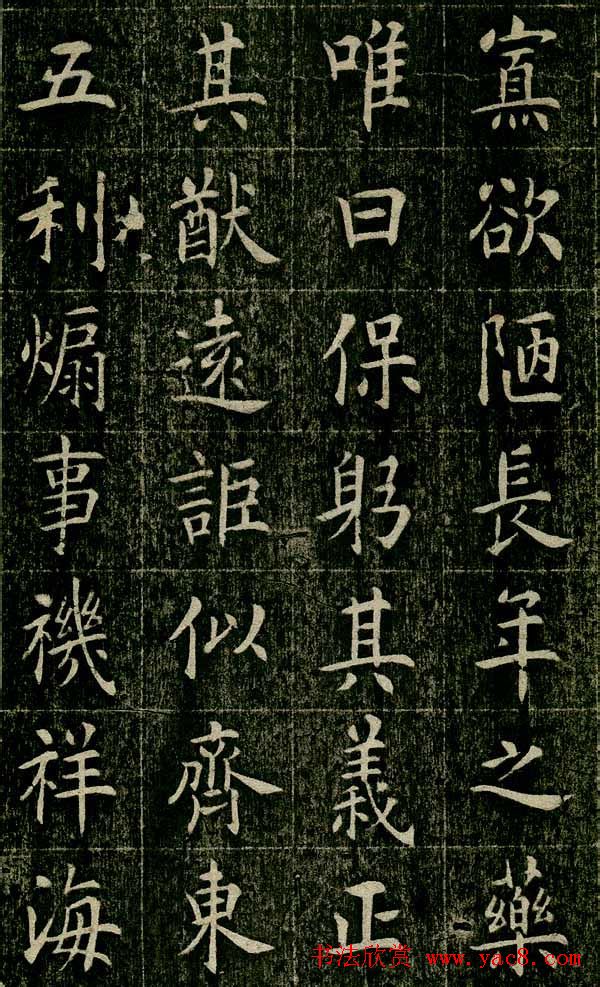 寡欲陋長年之藥
唯曰保躬其義正
其猷遠詎似齊東
五利煽事禨祥海
书法欣赏 www.yac8.com